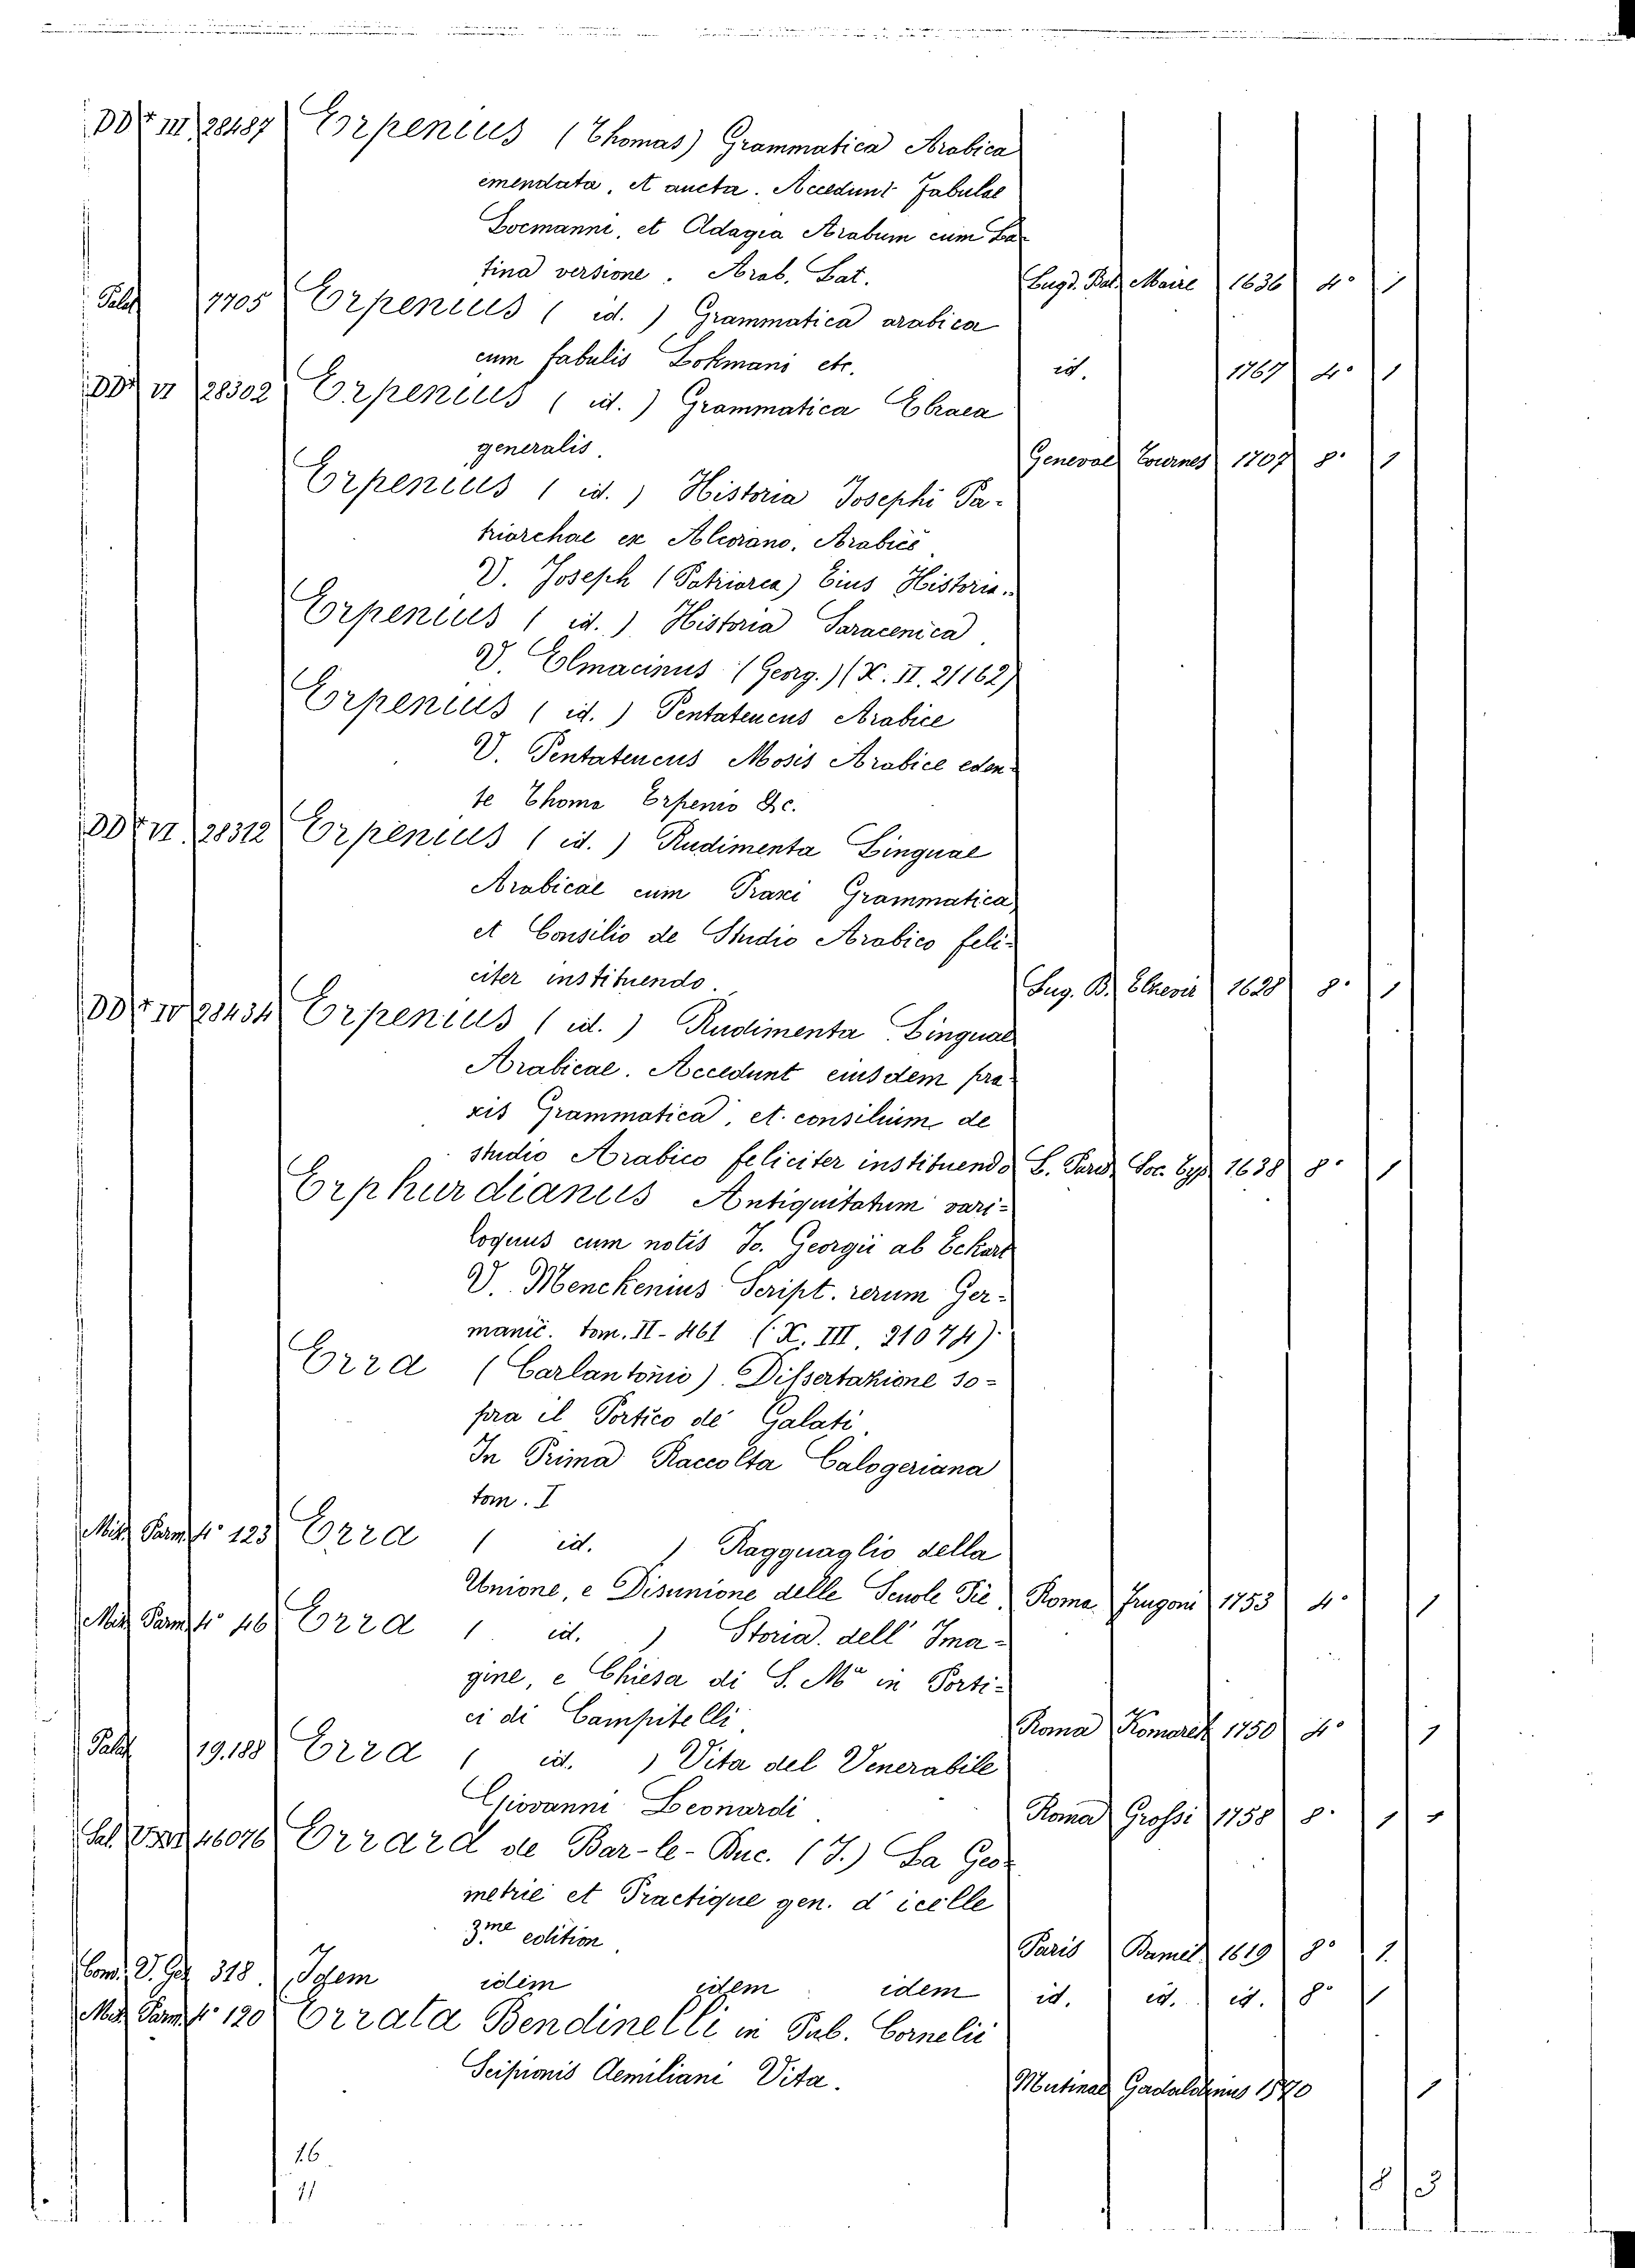 DD* III 28487 Erpenius (Thomas) Grammatica Arabica
emendata, et aucta. Accedunt Fabulae
Locmanni, et Adagia Arabum cum La-
tina versione. Arab. Lat. Lugd. Bat. Maire 1636 4° 1
Palat 7705 Erpenius ( id. ) Grammatica arabica
cum fabulis Lokmani etc. id. 1767 4° 1
DD* VI 28302 Erpenius ( id. ) Grammatica Ebraea
generalis. Genevae Tournes 1707 8° 1
Erpenius ( id. ) Historia Josephi Pa-
triarchae ex Alcorano, Arabicè
V. Joseph (Patriarca) Eius Historia.
Erpenius ( id. ) Historia Saracenica.
V. Elmacinus (Georg.) (X. II. 21162)
Erpenius ( id. ) Pentateucus Arabice
V. Pentateucus Mosis Arabice eden-
te Thoma Erpenio &c.
DD* VI. 28312 Erpenius ( id. ) Rudimenta Linguae
Arabicae cum Praxi Grammatica,
et Consilio de Studio Arabico feli-
citer instituendo. Lug. B. Elzevir 1628 8° 1
DD* IV 28434 Erpenius ( id. ) Rudimenta Linguae
Arabicae. Accedunt eiusdem pra-
xis Grammatica, et consilium de
studio Arabico feliciter instituendo L. Paris. Soc. Typ. 1638 8° 1
Erphurdianus Antiquitatum vari-
loquus cum notis Jo. Georgii ab Eckart
V. Menckenius Script. rerum Ger-
manic. tom. II - 461 (X. III. 21074).
Erra (Carlantonio) Dissertazione so-
pra il Portico de' Galati.
In Prima Raccolta Calogeriana
tom. I
Misc. Parm. 4° 123 Erra ( id. ) Ragguaglio della
Unione, e Disunione delle Scuole Pie. Roma Frugoni 1753 4° 1
Misc. Parm. 4° 46 Erra ( id. ) Storia dell' Ima-
gine, e Chiesa di S. Mª in Porti-
ci di Campitelli Roma Komarek 1750 4° 1
Palat 19.188 Erra ( id. ) Vita del Venerabile
Giovanni Leonardi Roma Grossi 1758 8° 1
Sal. 46076 Errard de Bar-le-Duc. (J.) La Geo-
metrie et Practique gen. d'icelle
3.me edition Paris 1619 8° 1.
318. Idem idem idem idem id. id. id. 8° 1
Misc. Parm. 4° 120 Errata Bendinelli in Pub. Cornelii
Scipionis Aemiliani Vita. Mutinae Gadaldinus 1570 1
16
11
8 3